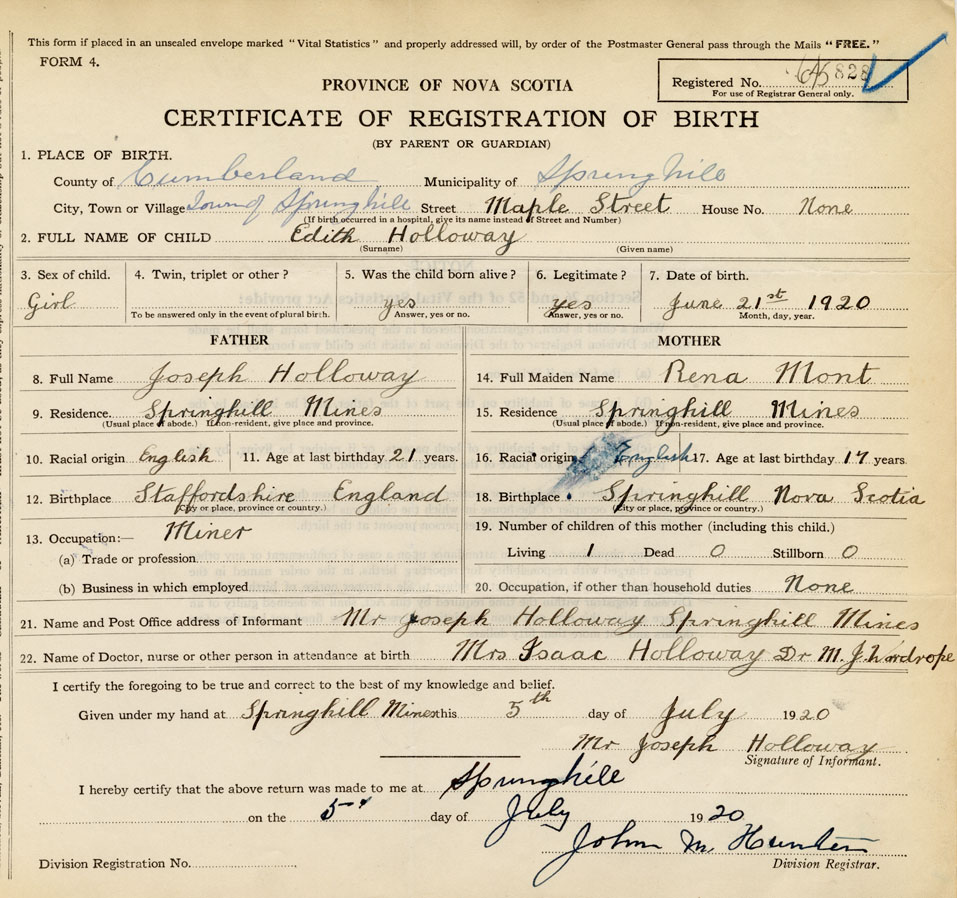 This form if placed in an unsealed envelope marked "Vital Statistics" and properly addressed will, by order of the Postmaster General pass through the Mails "FREE."
FORM 4.
Registered No. 828
For use of Registrar General only.
PROVINCE OF NOVA SCOTIA
CERTIFICATE OF REGISTRATION OF BIRTH
(BY PARENT OR GUARDIAN)
1. PLACE OF BIRTH.
County of Cumberland Municipality of Springhill
City, Town or Village Town of Springhill Street Maple Street House No. None
(If birth occurred in a hospital, give its name instead of Street and Number)
2. FULL NAME OF CHILD Edith Holloway
(Surname) (Given name)
3. Sex of child. 4. Twin, triplet or other? 5. Was the child born alive? 6. Legitimate? 7. Date of birth.
Girl yes yes June 21st 1920
To be answered only in the event of plural birth. Answer, yes or no. Answer, yes or no. Month, day, year.
FATHER MOTHER
8. Full Name Joseph Holloway 14. Full Maiden Name Rena Mont
9. Residence. Springhill Mines 15. Residence Springhill Mines
(Usual place of abode.) If non-resident, give place and province. (Usual place of abode.) If non-resident, give place and province.
10. Racial origin English 11. Age at last birthday 21 years. 16. Racial origin English 17. Age at last birthday 17 years.
12. Birthplace Staffordshire England 18. Birthplace Springhill Nova Scotia
(City or place, province or country.) (City or place, province or country.)
13. Occupation:— Miner 19. Number of children of this mother (including this child.)
(a) Trade or profession Living 1 Dead 0 Stillborn 0
(b) Business in which employed 20. Occupation, if other than household duties None
21. Name and Post Office address of Informant Mr Joseph Holloway Springhill Mines
22. Name of Doctor, nurse or other person in attendance at birth Mrs Isaac Holloway Dr M. J. Wardrope
I certify the foregoing to be true and correct to the best of my knowledge and belief.
Given under my hand at Springhill Mines this 5th day of July 1920
Mr Joseph Holloway
Signature of Informant.
I hereby certify that the above return was made to me at Springhill
on the 5th day of July 1920
John M. Hunter
Division Registration No. Division Registrar.